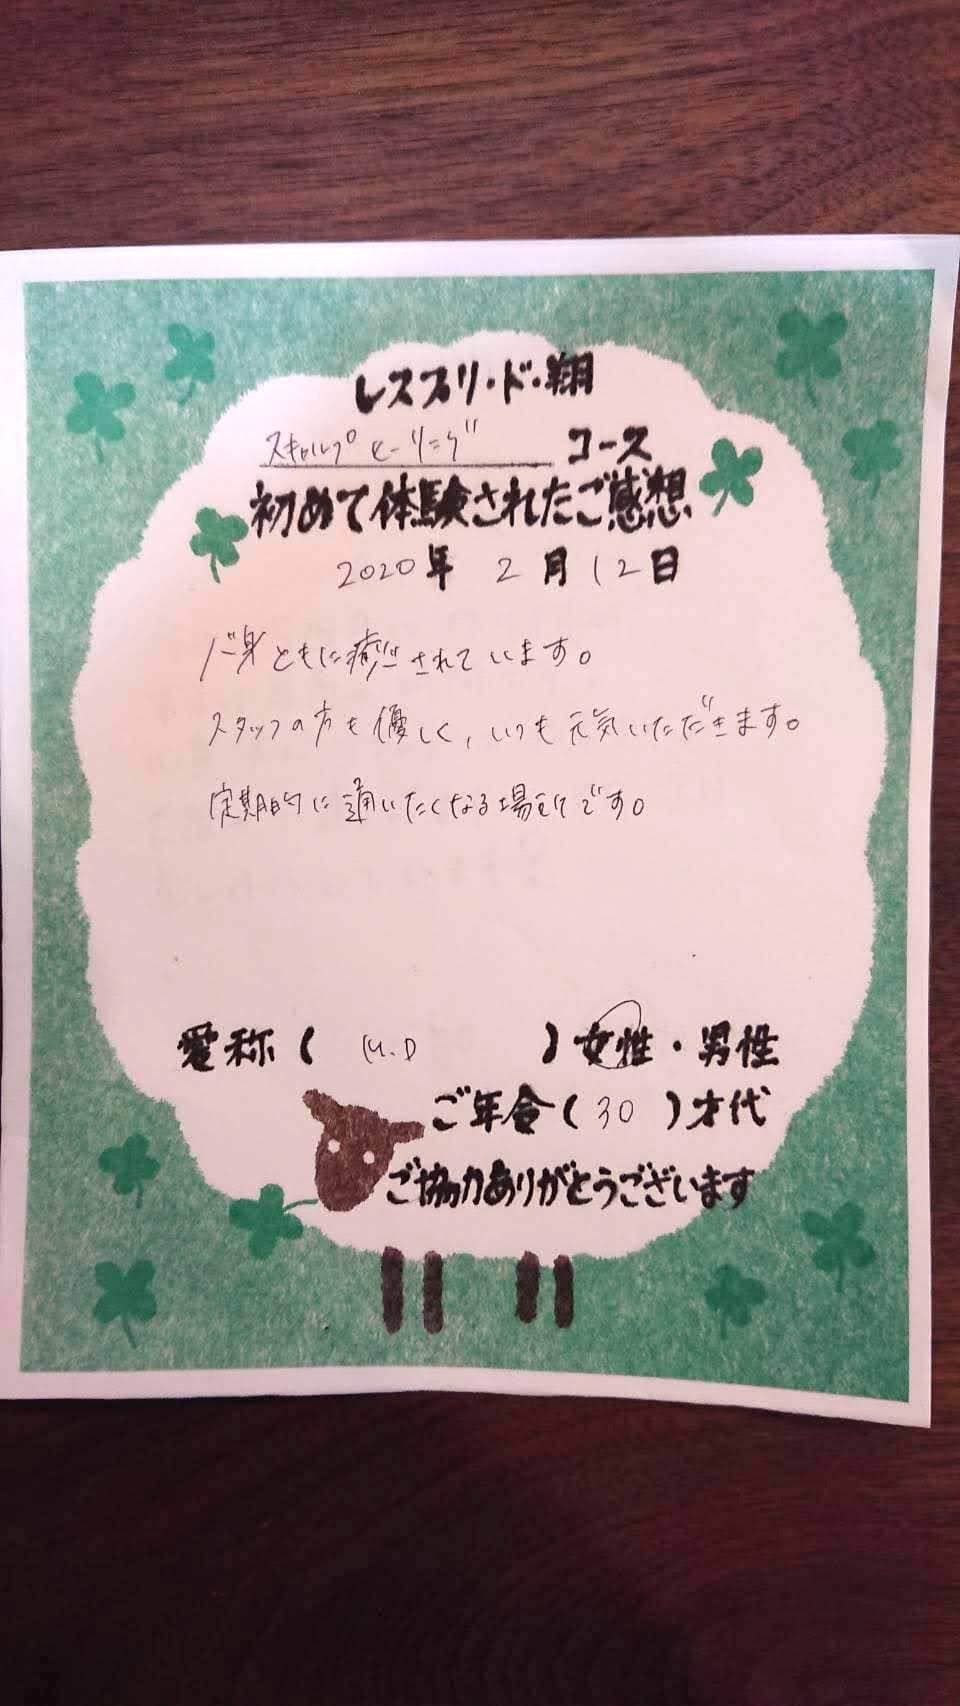 レスプリ・ド・翔
スキャルプヒーリング コース
初めて体験されたご感想
2020年 2月12日
心身ともに癒されています。
スタッフの方も優しく、いつも元気いただきます。
定期的に通いたくなる場所です。
愛称( M.D )女性・男性
ご年令(30)才代
ご協力ありがとうございます